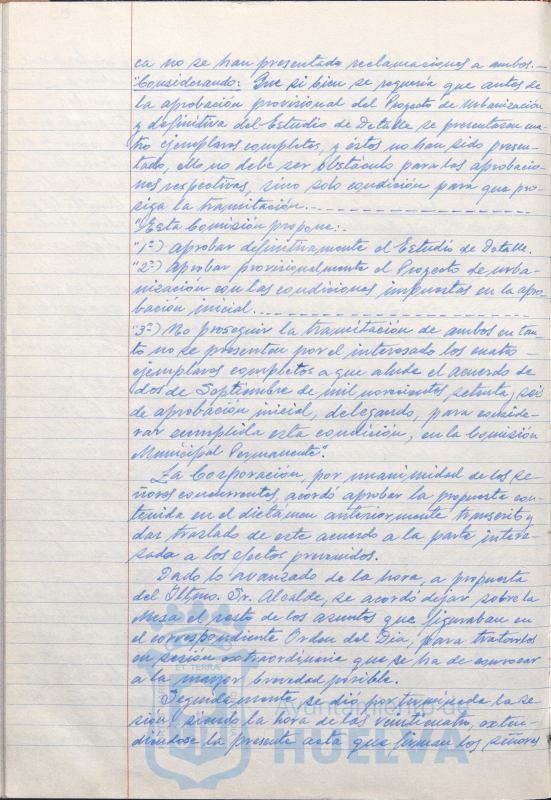 ca no se han presentado reclamaciones a ambos.-
"Considerando: Que si bien se requería que antes de
la aprobación provisional del Proyecto de Urbanización
y definitiva del Estudio de Detalle se presentasen cua-
tro ejemplares completos, y éstos no han sido presen-
tado, ello no debe ser obstáculo para las aprobacio-
nes respectivas, sino solo condición para que pro-
siga la tramitación.
"Esta Comisión propone:.
"1º) Aprobar definitivamente el Estudio de Detalle.
"2º) Aprobar provisionalmente el Proyecto de urba-
nización con las condiciones impuestas en la apro-
bación inicial.
"3º) No proseguir la tramitación de ambos en tan-
to no se presenten por el interesado los cuatro
ejemplares completos a que alude el acuerdo de
dos de Septiembre de mil novecientos setenta y seis
de aprobación inicial, delegando, para conside-
rar cumplida esta condición, en la Comisión
Municipal Permanente".
La Corporación, por unanimidad de los se-
ñores concurrentes, acordó aprobar la propuesta con-
tenida en el dictámen anteriormente transcrito y
dar traslado de este acuerdo a la parte intere-
sada a los efectos prevenidos.
Dado lo avanzado de la hora, a propuesta
del Iltmo. Sr. Alcalde, se acordó dejar sobre la
Mesa el resto de los asuntos que figuraban en
el correspondiente Orden del Día, para tratarlos
en sesión extraordinaria que se ha de convocar
a la mayor brevedad posible.
Seguidamente se dió por terminada la se-
sión, siendo la hora de las veinticuatro, exten-
diéndose la presente acta que firman los señores
Ayuntamiento de
HUELVA